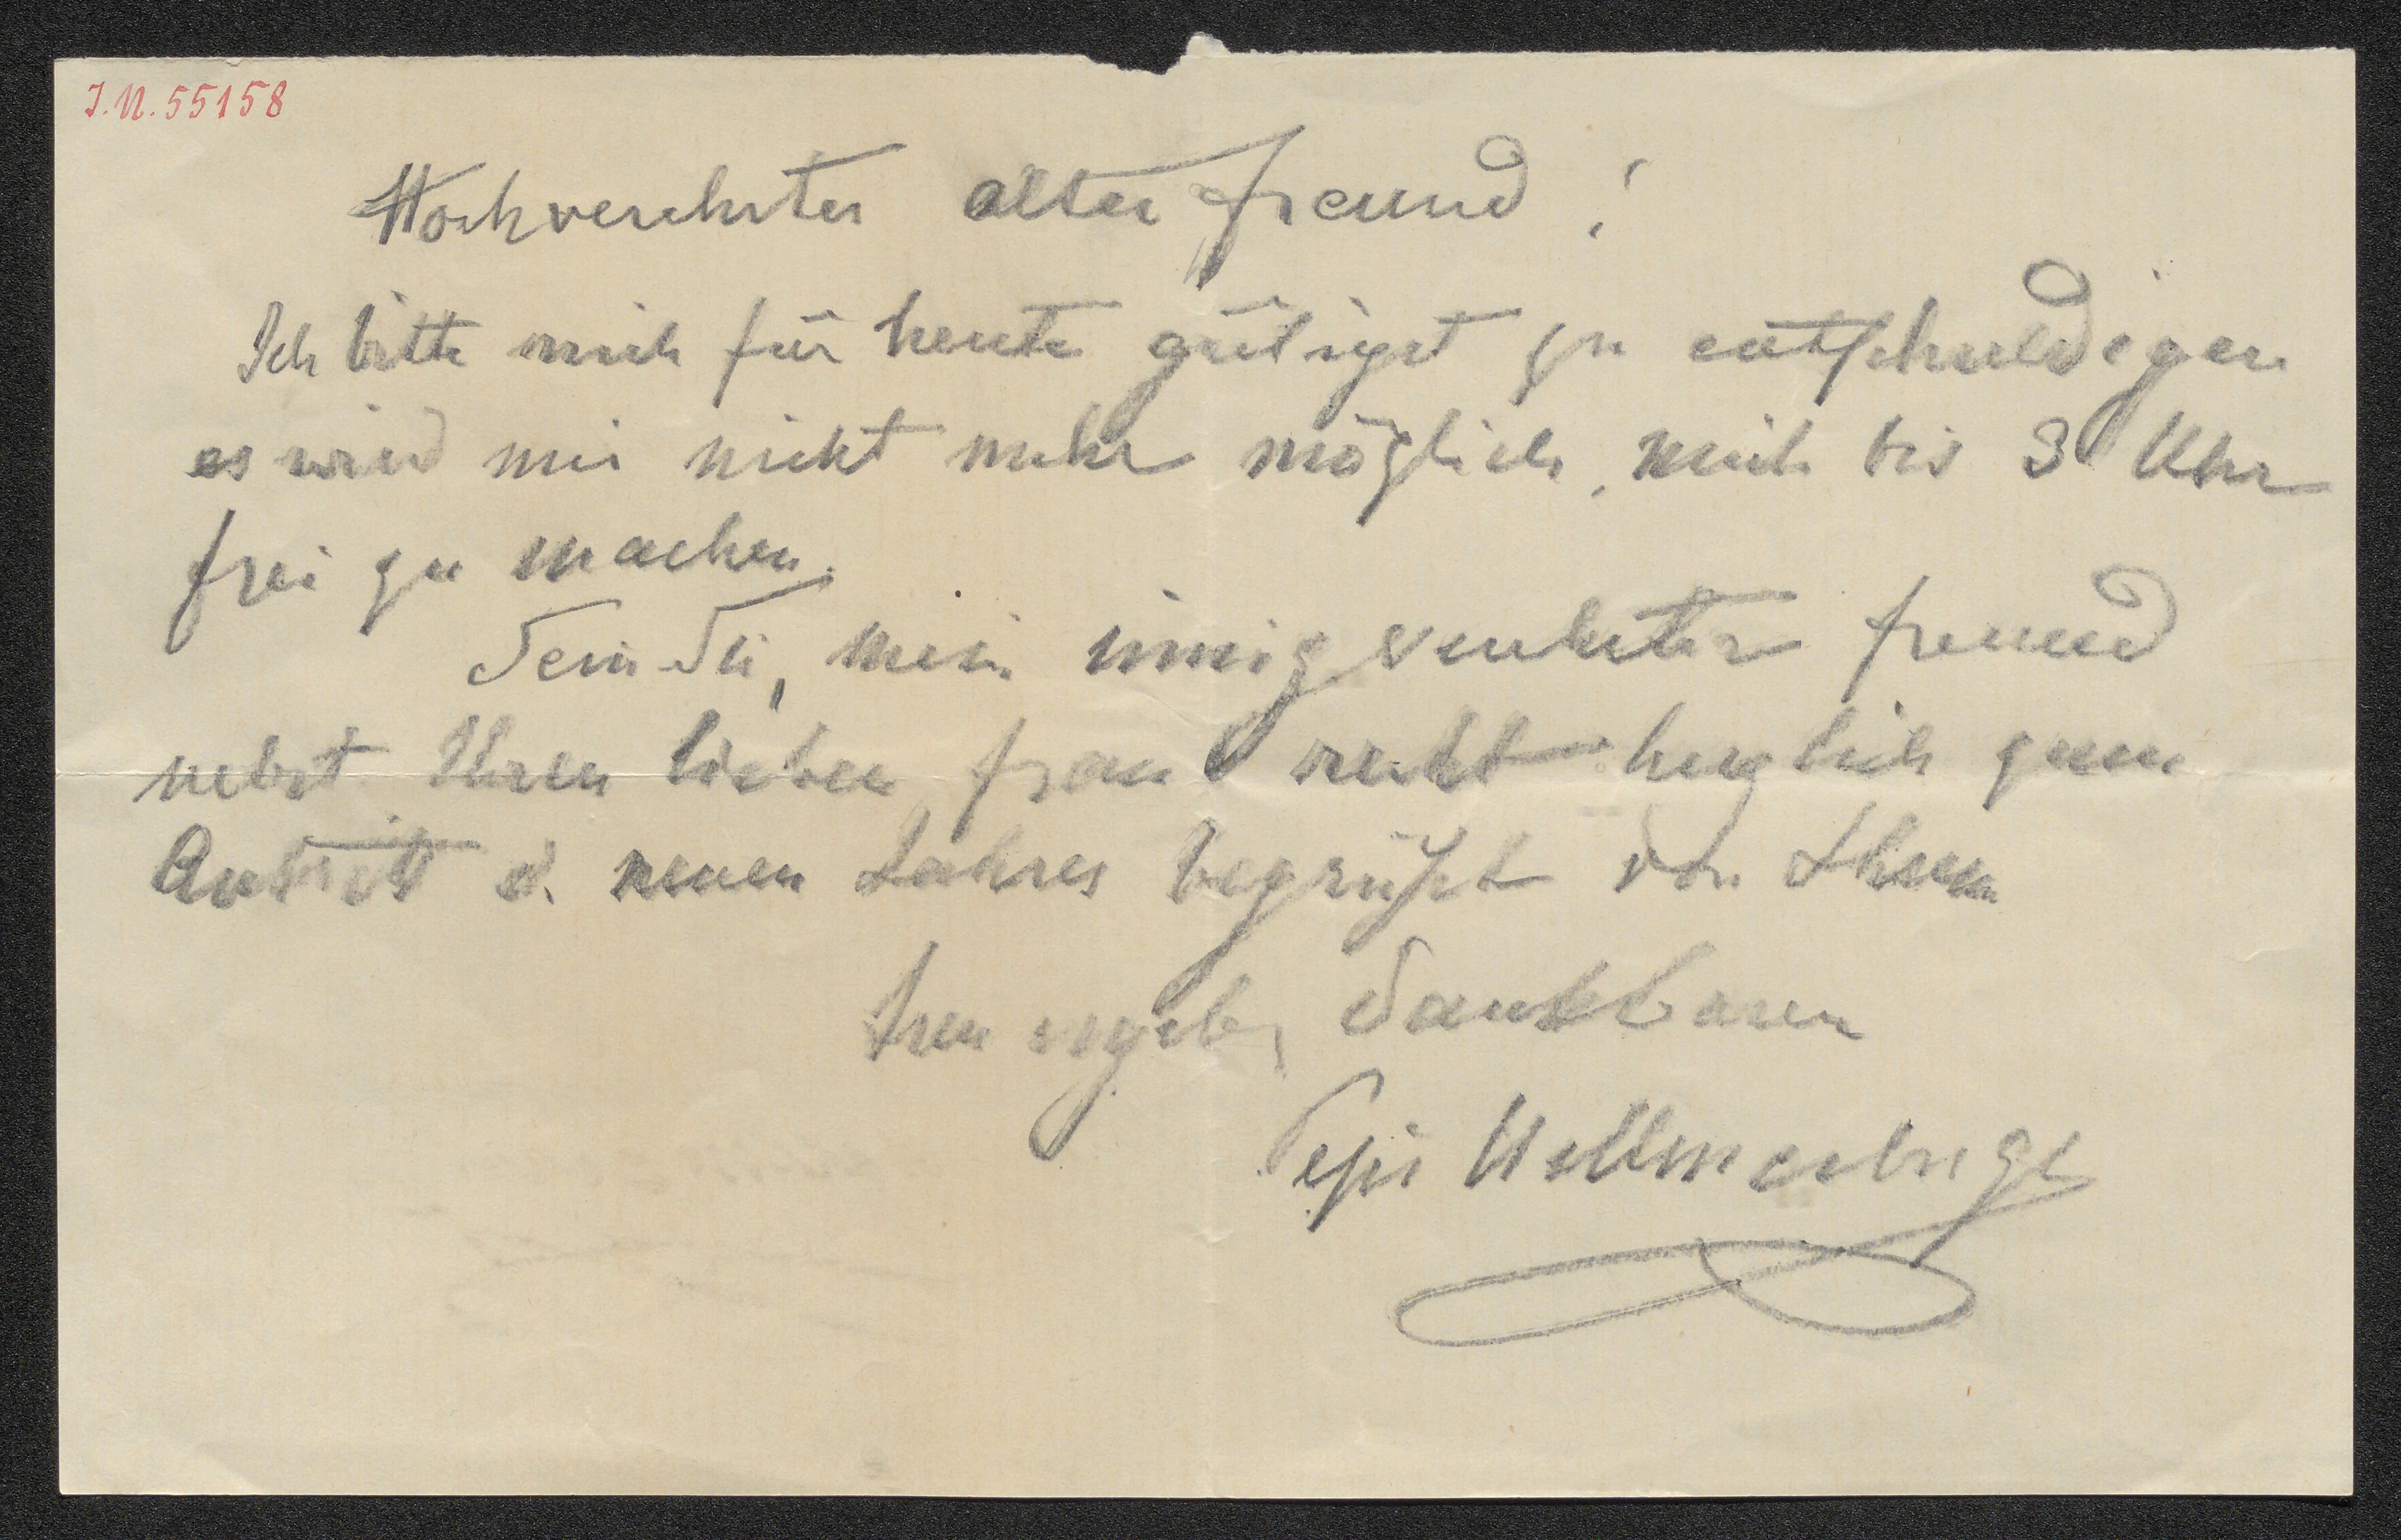 J.N. 55158
Hochverehrter alter Freund!
Ich bitte mich für heute gütigst zu entschuldigen
es wird mir nicht mehr möglich, mich bis 3 Uhr
frei zu machen.
Sein Sie, mein innig verehrter Freund
nebst Ihrer lieben Frau recht herzlich zum
Antritt d. neuen Jahres begrüßt von Ihrem
treu ergeb. dankbaren
Pepi Hellmesberger